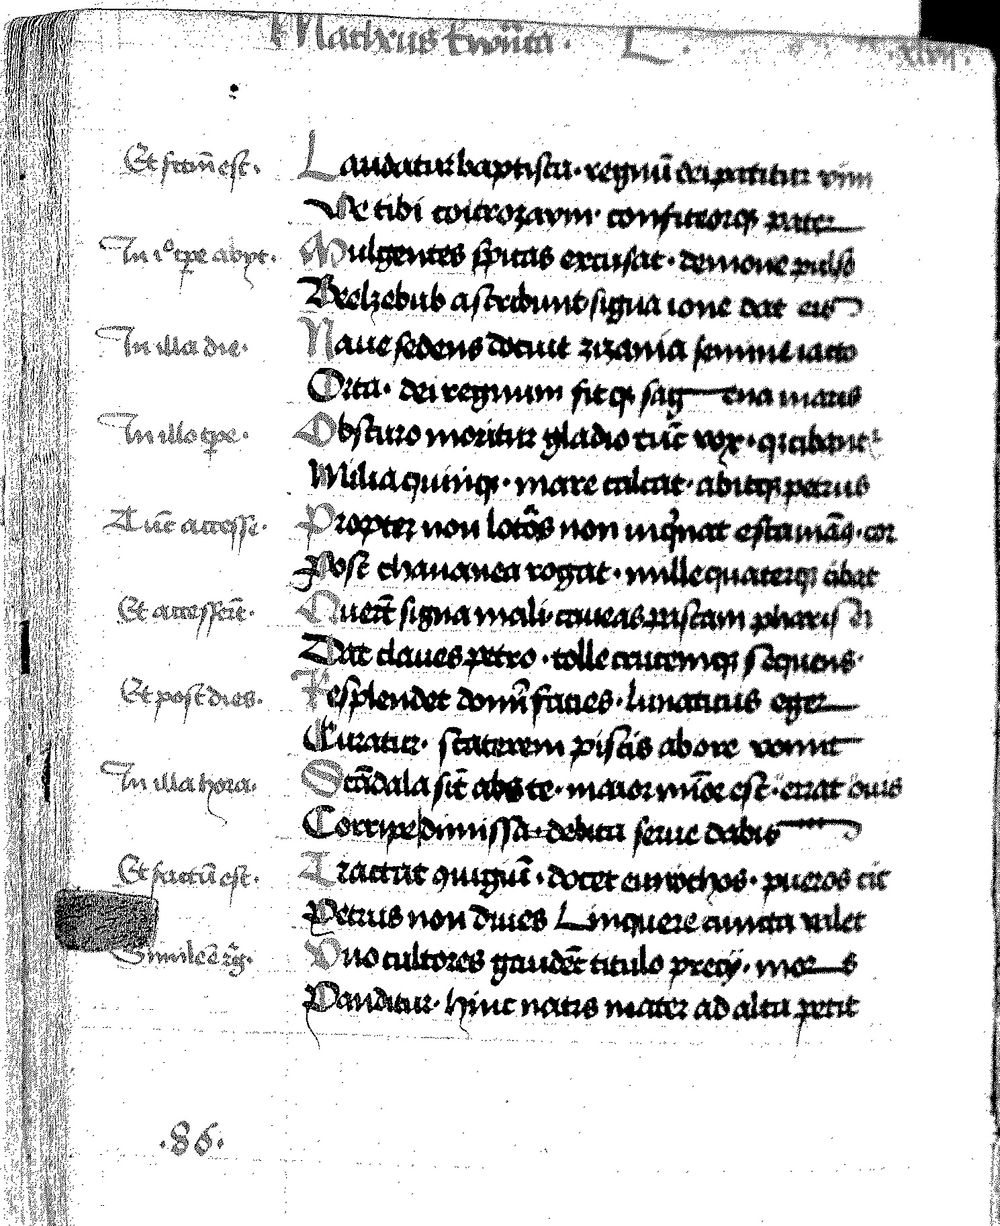 Matheus
Et factū est. Laudatur baptista. regnū dei patitur vim
Ve tibi corrozaym. confiteorqꝫ pater
In i° tꝑe abyt. Vulgentes spicas excusat. demone pulso
Beelzebub ascribunt signa ione dat eis
In illa die. Naue sedens docuit zizania semine iacto
Orta. dei regnum fitqꝫ sag ena maris
In illo tꝑe. Obscuro moritur gladio tūc vox. qꝫ cibantᷣ
Milia quinqꝫ. mare calcat. abitqꝫ petrus
Tūc accesse. Propter non lotos non inqͥnat esca manꝰ. cor
Post chananea rogat. mille quaterqꝫ cibat
Et accesserūt. Querūt signa mali. caueas piscam pharisei
Dat claues petro. tolle crucemqꝫ sequens.
Et post dies. Resplendet domī facies. lunaticus eger
Curatur. staterem piscis ab ore vomit
In illa hora. Scādala sīt abs te. maior mīor est. errat ouis
Corripe dimissa. debita serue dabis
Et factū est. Tractat quiguī. docet eunochos. pueros cit
Petrus non diues Linquere cuncta valet
Simile ē rḡ. Vno cultores gaudēt titulo precij. mors
Panditur. hinc natis mater ad alta petit
.86.